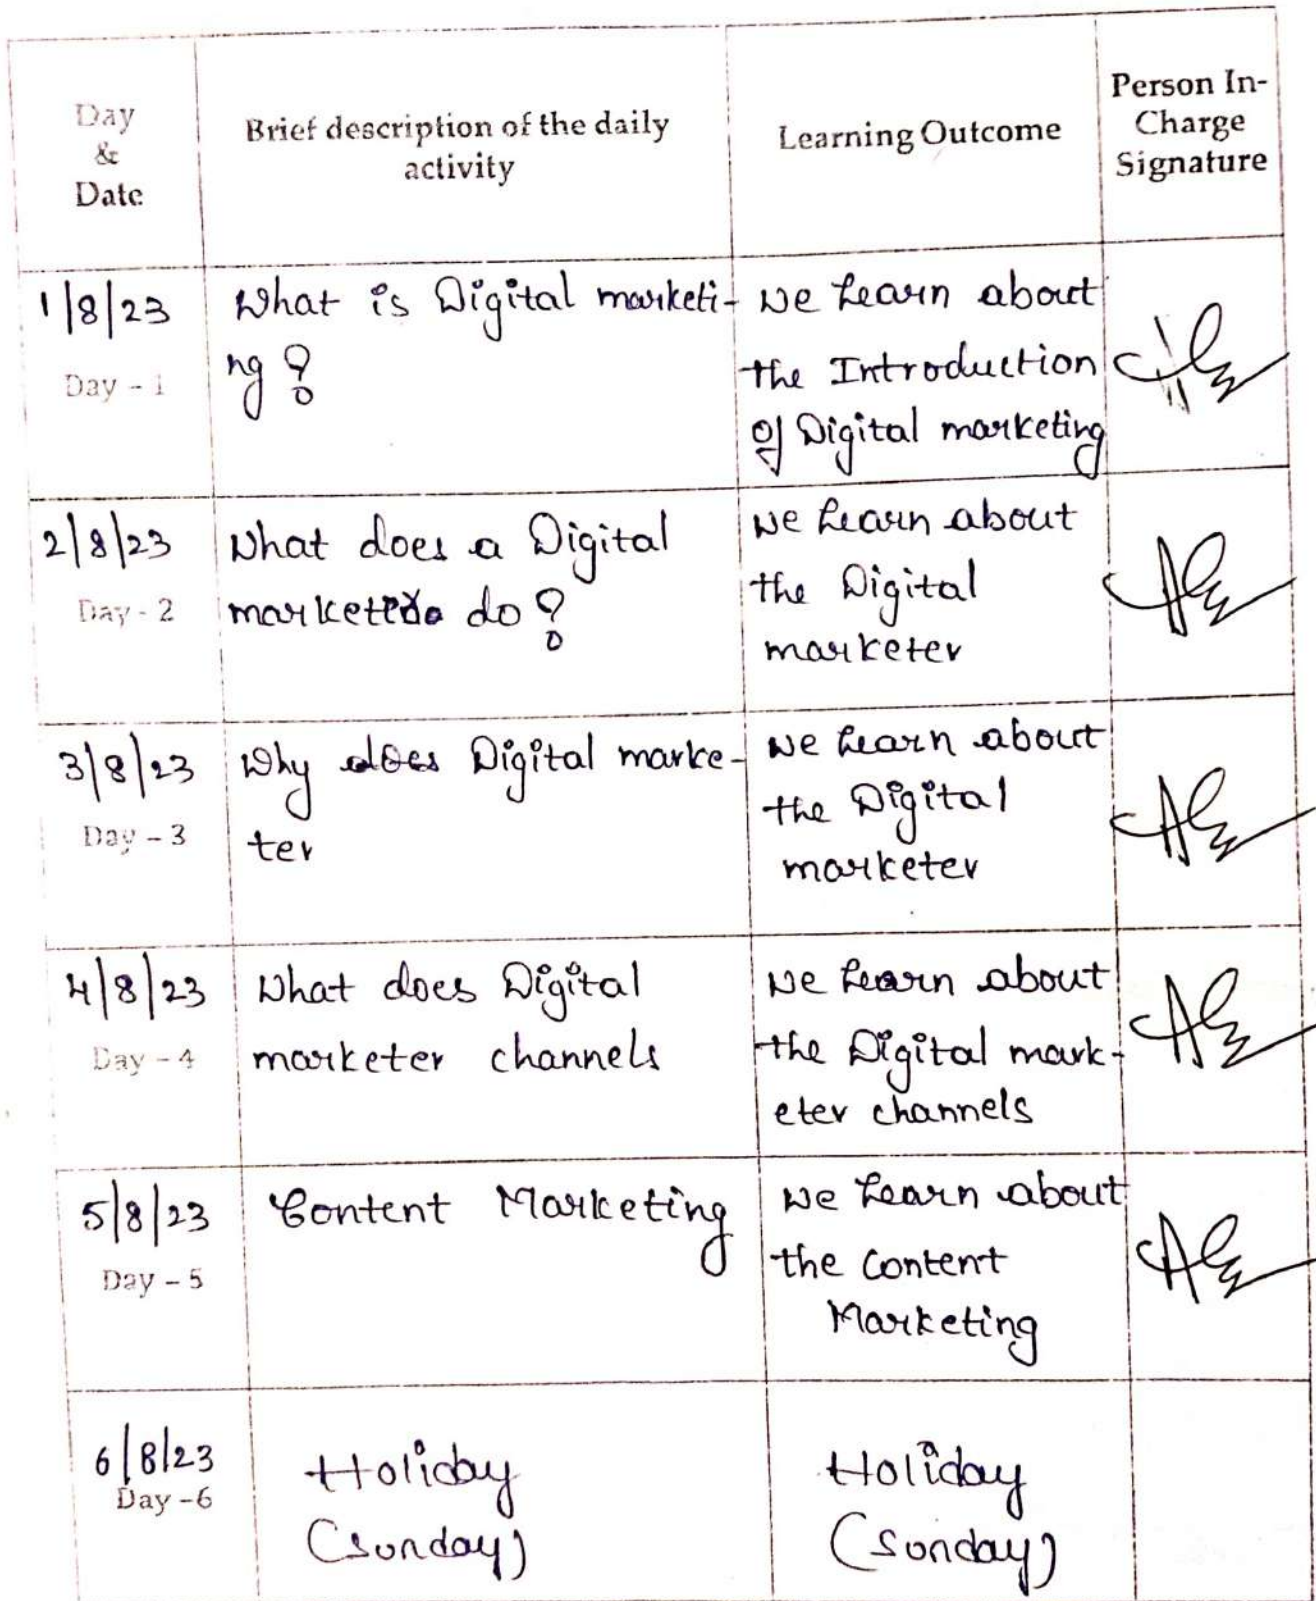 Day
&
Date
Brief description of the daily
activity
Learning Outcome
Person In-
Charge
Signature
1/8/23
Day - 1
What is Digital marketi-
ng?
We Learn about
the Introduction
of Digital marketing
2/8/23
Day - 2
What does a Digital
do?
We Learn about
the Digital
marketer
3/8/23
Day - 3
Why does Digital marke-
ter
We Learn about
the Digital
marketer
4/8/23
Day - 4
What does Digital
marketer channels
We Learn about
the Digital mark-
eter channels
5/8/23
Day - 5
Content Marketing
We Learn about
the Content
Marketing
6/8/23
Day - 6
Holiday
(Sunday)
Holiday
(Sunday)